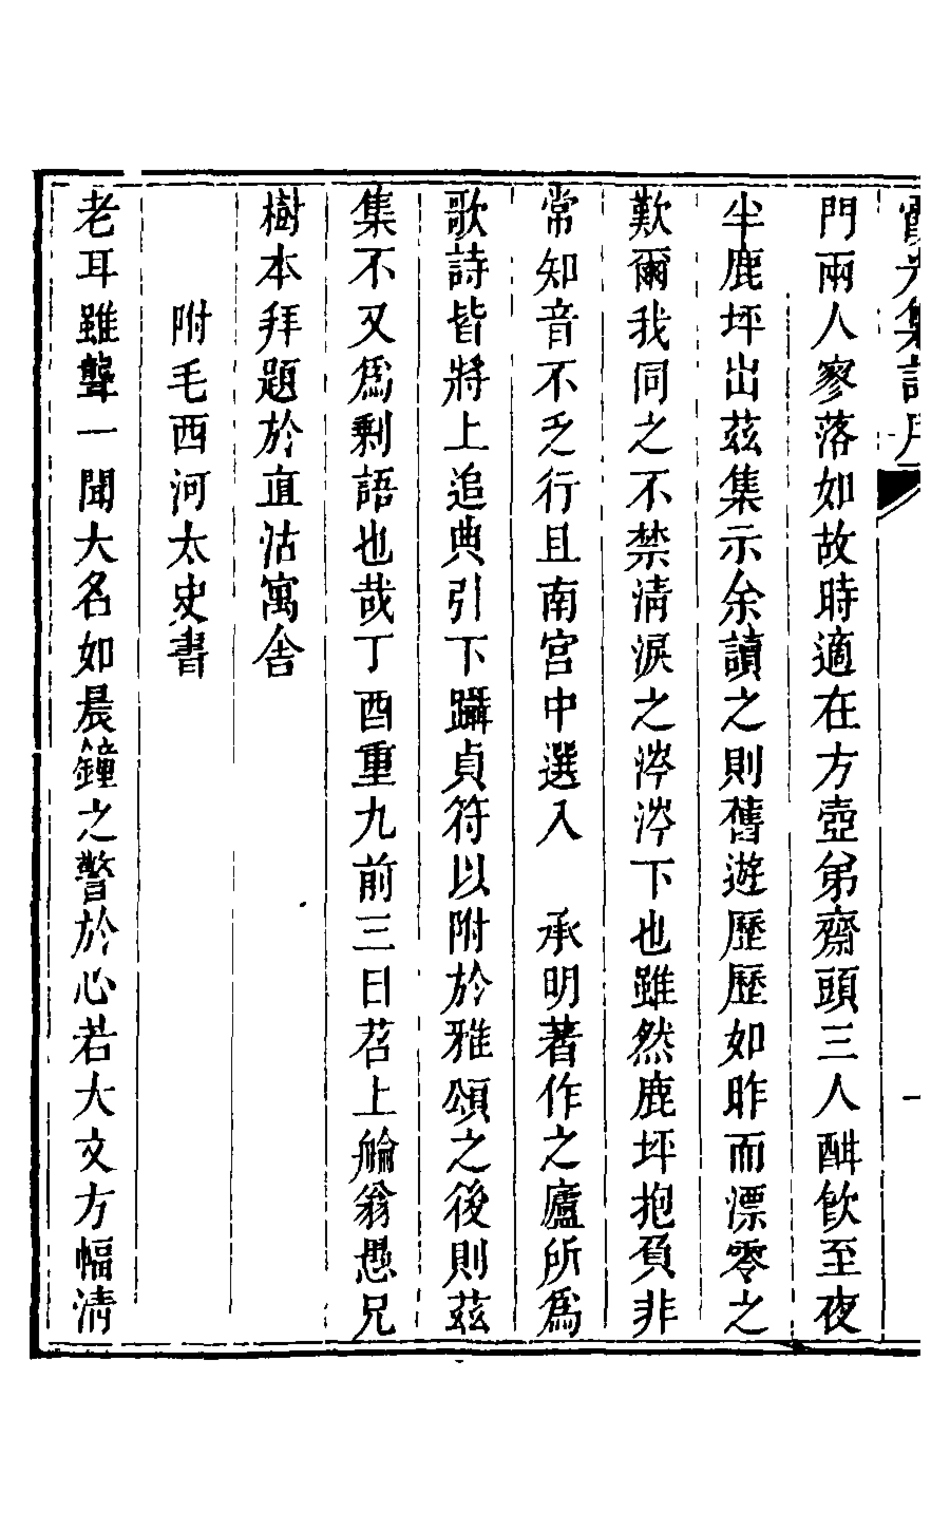 集詩序
門兩人寥落如故時適在方壺弟齋頭三人酣飲至夜
半鹿坪出茲集示余讀之則舊遊歷歷如昨而漂零之
歎爾我同之不禁清淚之涔涔下也雖然鹿坪抱負非
常知音不乏行且南宮中選入　承明著作之廬所爲
歌詩皆將上追典引下躡貞符以附於雅頌之後則茲
集不又爲剩語也哉丁酉重九前三日苕上艌翁愚兄
樹本拜題於直沽寓舍
附毛西河太史書
老耳雖聾一聞大名如晨鐘之警於心若大文方幅清